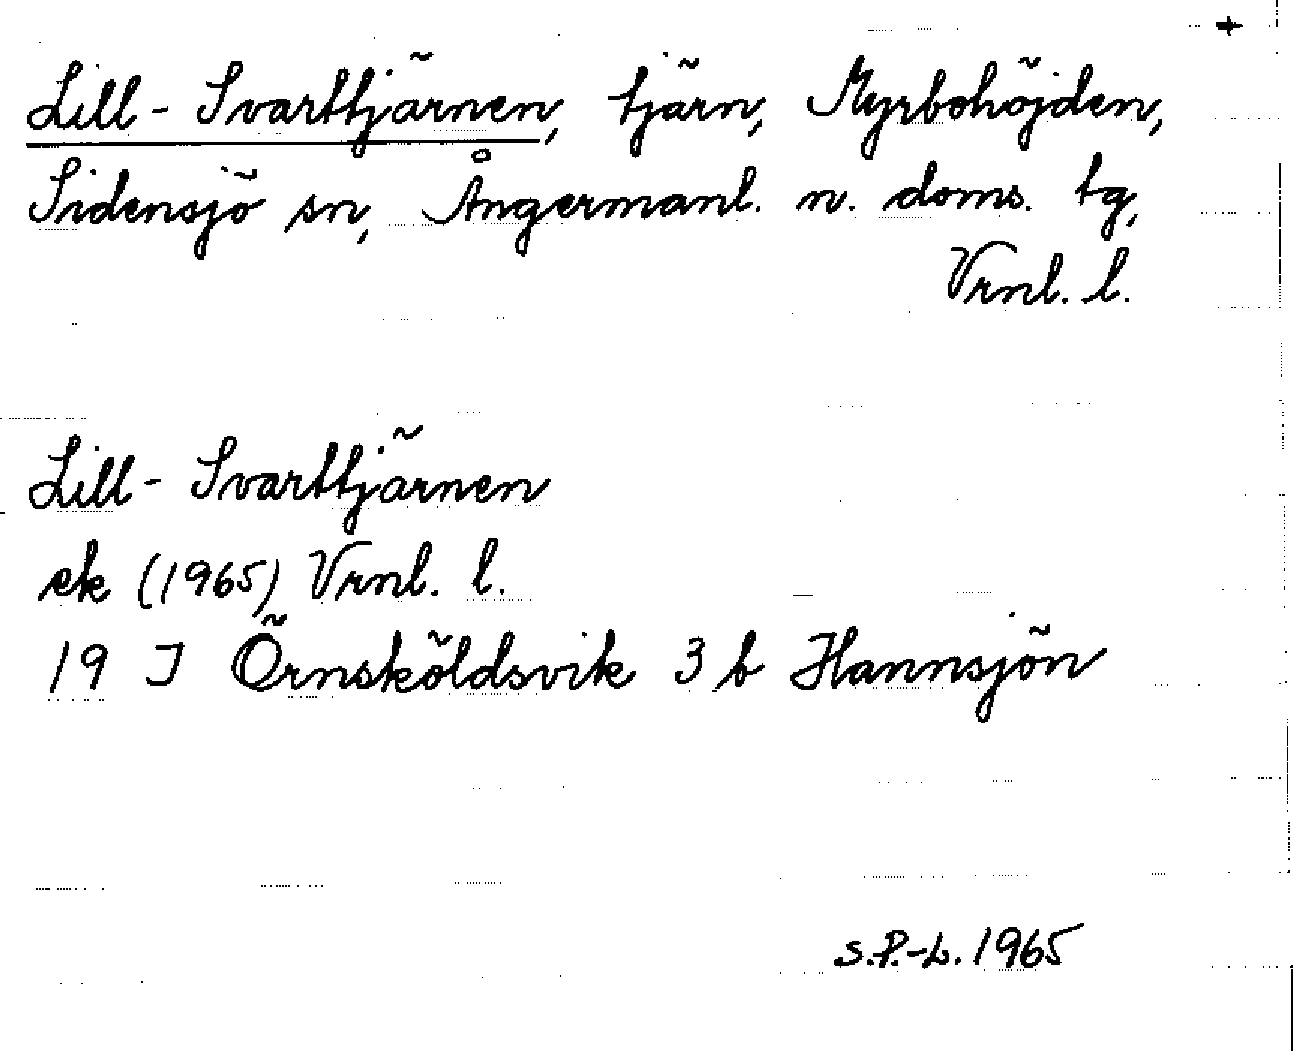 Lill-Svarttjärnen, tjärn, Myrbohöjden,
Sidensjö sn, Ångermanl. n. doms. tg,
Vrnl. l.
Lill-Svarttjärnen
ek (1965) Vrnl. l.
19 I Örnsköldsvik 3 b Hannsjön
S.P.-L. 1965